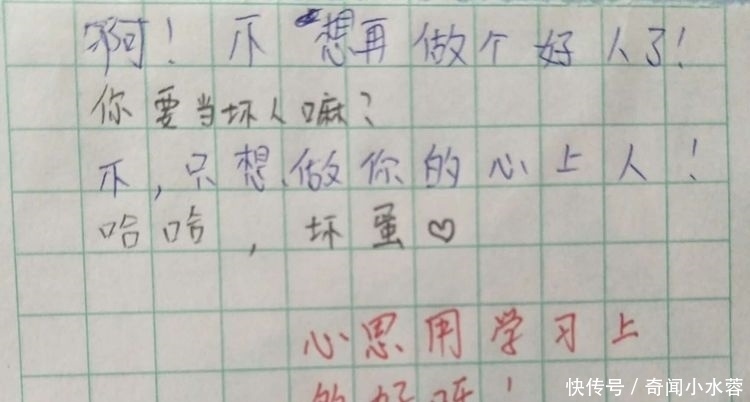 啊！不想再做个好人了！
你要当坏人嘛？
不，只想做你的心上人！
哈哈，坏蛋♡
心思用学习上
的好呀！
快传号／奇闻小水蓉